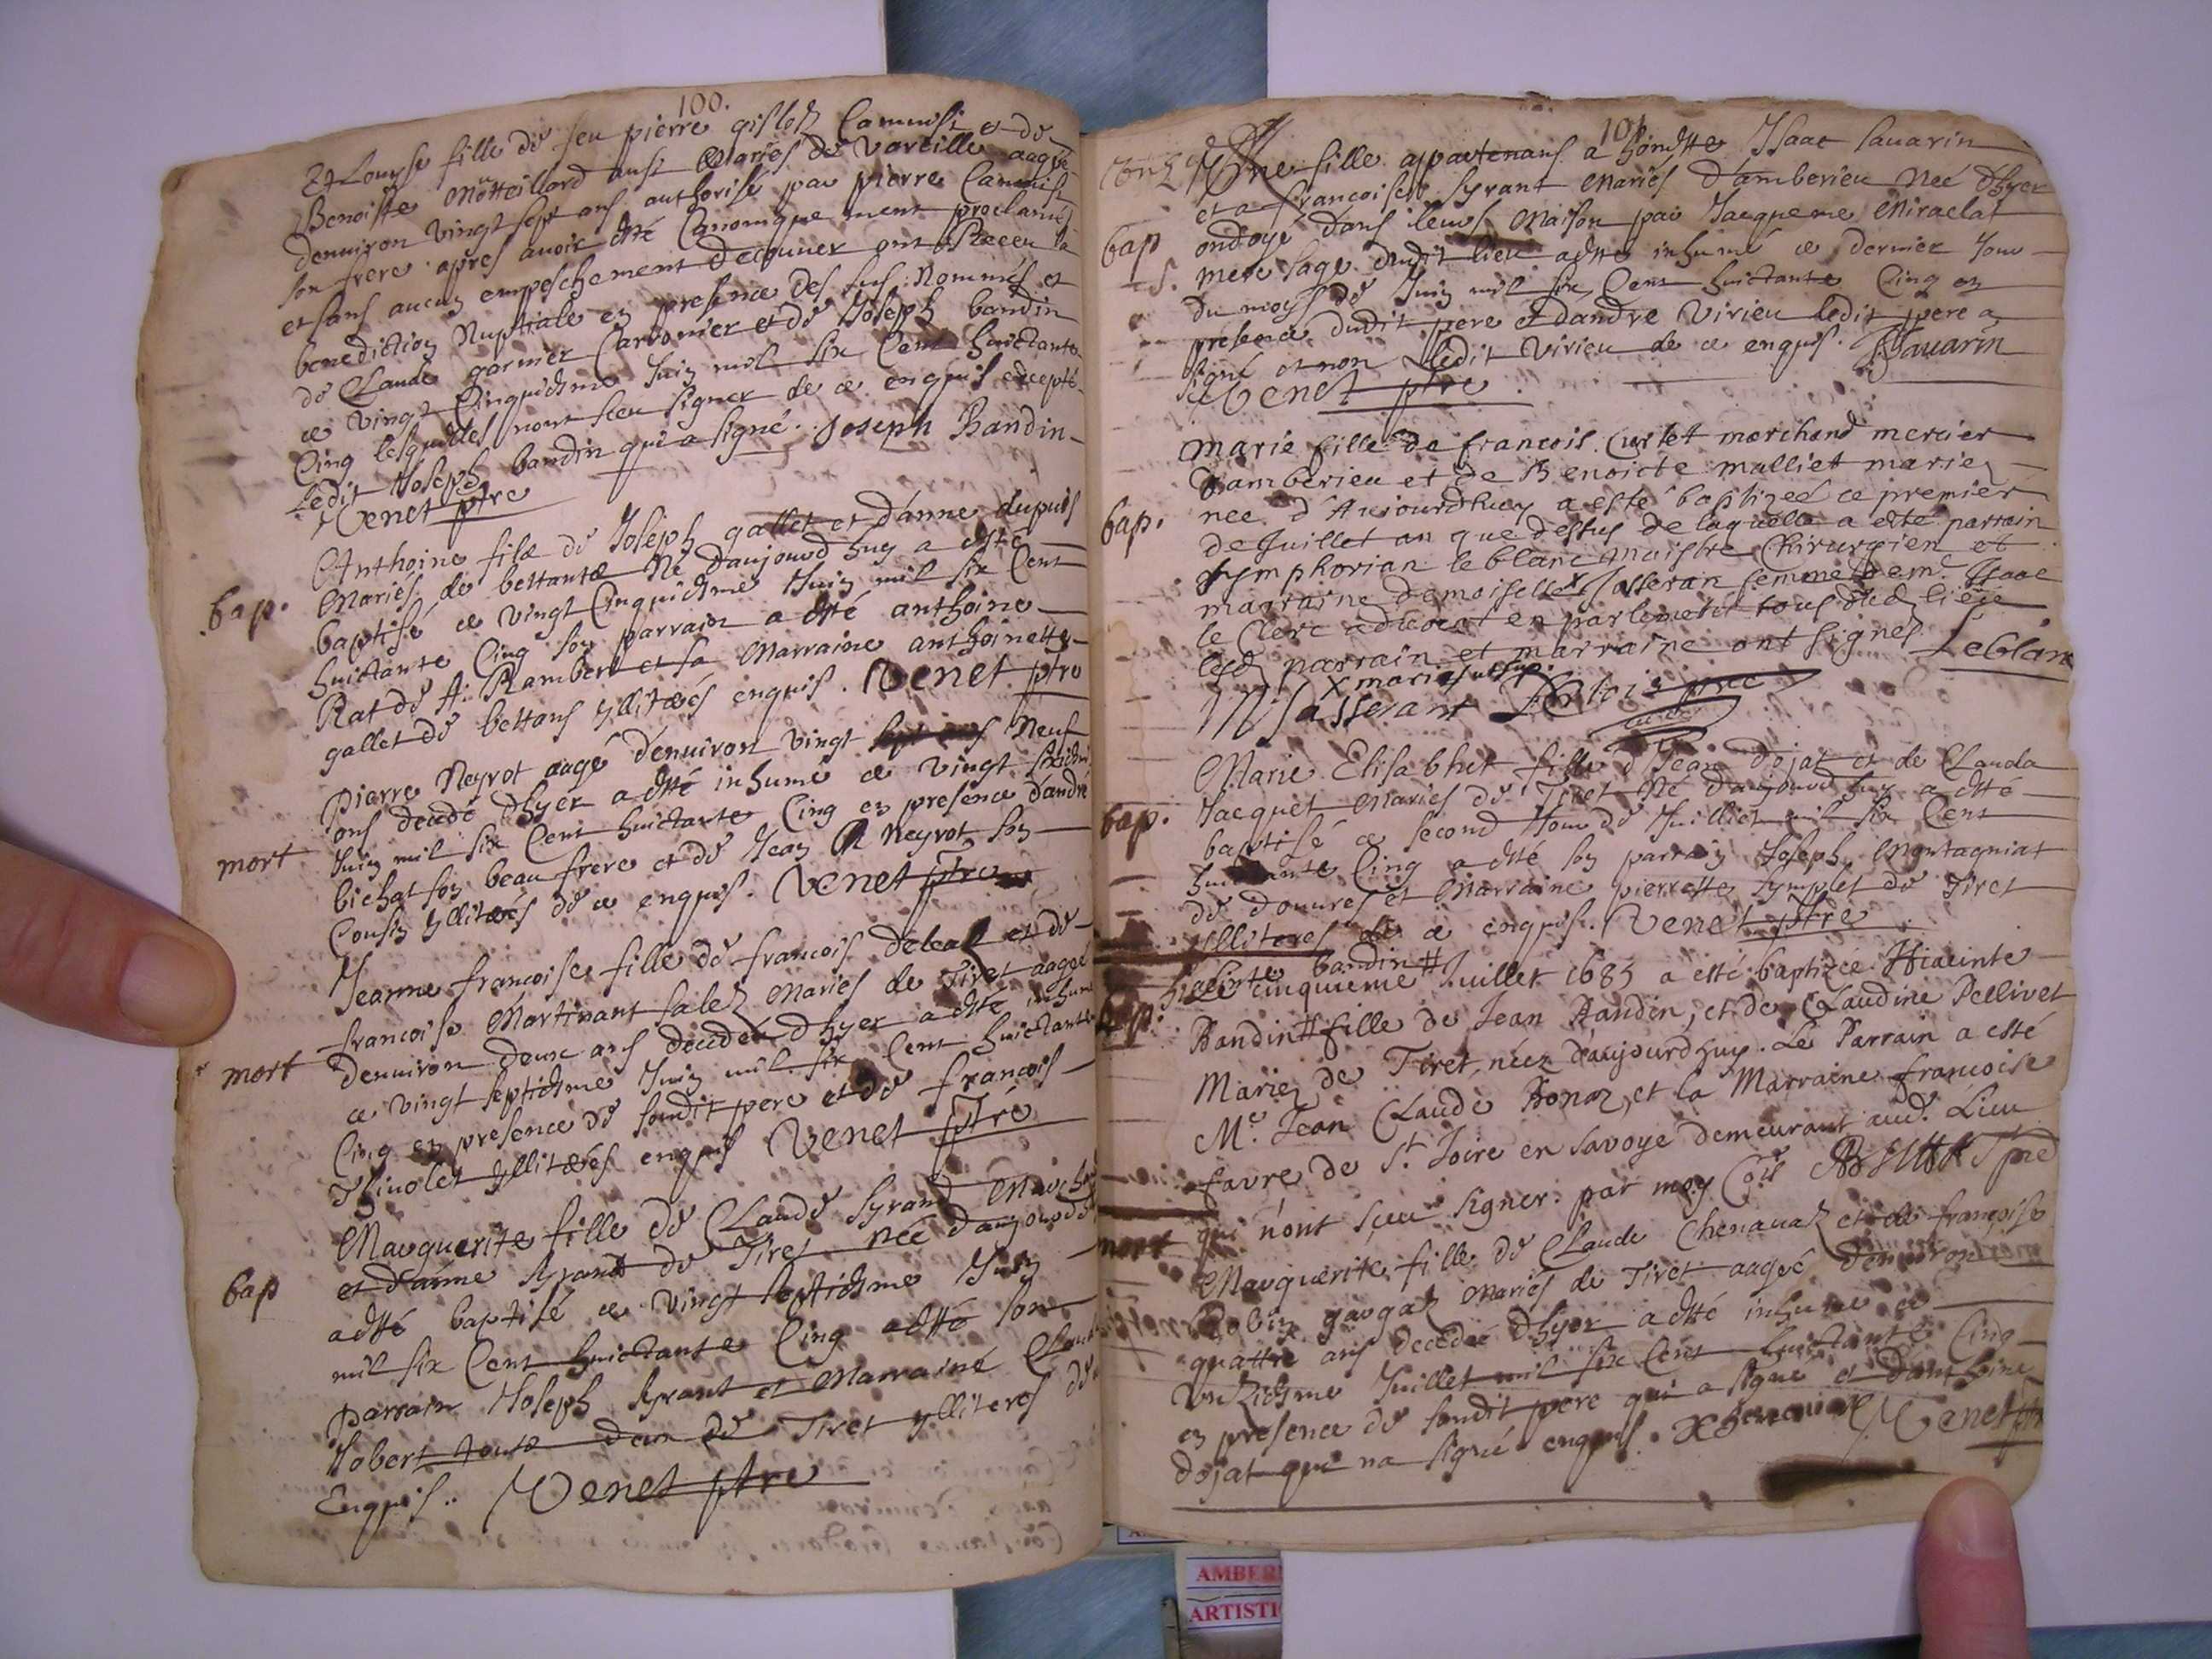 100.
Et Louyse fille de feu pierre gislet Camusi et de
Benoiste Motteillard ausi Mariés de Vareille aagée
denuiron vingt sept ans authorisé par pierre Camusi
son frere apres auoir esté Canonique ment proclamés
et sans aucun empeschement decouuer ont Receu la
benediction Nuptiale en presence des sus Nommés et
de Claude garnier Carbonier et de Joseph bandin
ce vingt Cinquiesme Juin mil six Cent huictante
Cinq lesquelles nont sceu signer de ce enquis excepté
ledit Joseph bandin qui a signé. Joseph Bandin
Venet ptre
bap.
Anthoine filz de Joseph gallet et d'anne dupuis
Mariés de bettants Né d'aujourdhuy a esté
baptisé ce vingt Cinquiesme Juin mil six Cent
huictante Cinq son parrain a esté anthoine
Rat de st Rambert et sa Marraine anthoinette
gallet de bettans yllitarés enquis. Venet ptre
mort
Pierre Neyrot aagé denuiron vingt sept ans Neuf
ans decedé d'hyer a esté inhumé ce vingt sixiesme
Juin mil six Cent huictante Cinq en presence d'andré
bichat son beau frere et de Jean Neyrot son
Cousin yllitarés de ce enquis. Venet ptre
mort
Jeanne francoise fille de francois deleal et de
francoise Martinant salez Mariés de Tiret aagée
denuiron deux ans decedée d'hyer a esté inhumé
ce vingt septiesme Juin mil six Cent huictante
Cinq en presence de sondit pere et de francois
Thinolet yllitarés enquis Venet ptre
bap
Marguerite fille de Claude Syrand March
et d'anne Syrand de Tiret née d'aujourdhuy
a esté baptisé ce vingt septiesme Juin
mil six Cent huictante Cinq a esté son
parrain Joseph Syrant et Marraine Claud
Hobert tous deux de Tiret ylliteres de
Enquis.. Venet ptre
101.
Une fille appartenans a honeste Isaac Sauarin
bap
et a francoise Syrant Mariés d'amberieu Neé d'hyer
ondoyé dans leurs Maison par Jacqueme Miraclat
mere sage dudit lieu a esté inhumé ce dernier Jour
du moys de Juin mil six Cent huictante Cinq en
presence dudit pere et dandre Virieu ledit pere a
signé et non Ledit Virieu de ce enquis. Sauarin
Venet ptre
bap.
Marie fille de francois Curlet marchand mercier
d'amberieu et de Benoicte malliet mariez
nee d'Aujourdhuy a esté baptizeé ce premier
de Juillet an que dessus de laquelle a esté parrain
symphorian le blanc maistre Chirurgien et
marraine demoiselle x Josseran femme de mr Isaac
le Clerc aduocat en parlement tous dud lieu
lesd parrain et marraine ont signez. Leblanc
x marie
M Jasserant
bap.
Marie Elisabhet fille d Jean dojat et de Clauda
Jacquet Mariés de Tiret Né d'aujourdhuy a esté
baptisé ce second Jour de Juilliet mil six Cent
huictante Cinq a esté son parrain Joseph Montagniat
de douures et Marraine pierrette Symplet de Tiret
ylliteres de ce enquis. Venet ptre
bap.
hiacinte bandin #
Le cinquieme Juillet 1685 a esté baptizée Hiacinte
Bandin # fille de Jean Bandin, et de Claudine Pellivet
Mariez de Tiret, néez d'aujourd'huy. Le Parrain a esté
Me. Jean Claude Bonaz, et la Marraine francoise
favre de St Joire en Savoye demeurant aud. Lieu
qui n'ont sçeu signer. par moy
mort
Marguerite fille de Claude Chenauaz et de françoise
Gobin gaugaz mariés de Tiret aageé denuiron
quattre ans decedeé d'hyer a esté inhumé ce
Vnziesme Juillet mil six Cent huictante Cinq
en presence de sondit pere qui a signé et d'anthoine
dojat qui na signé enquis. Venet ptre
AMBER
ARTISTI